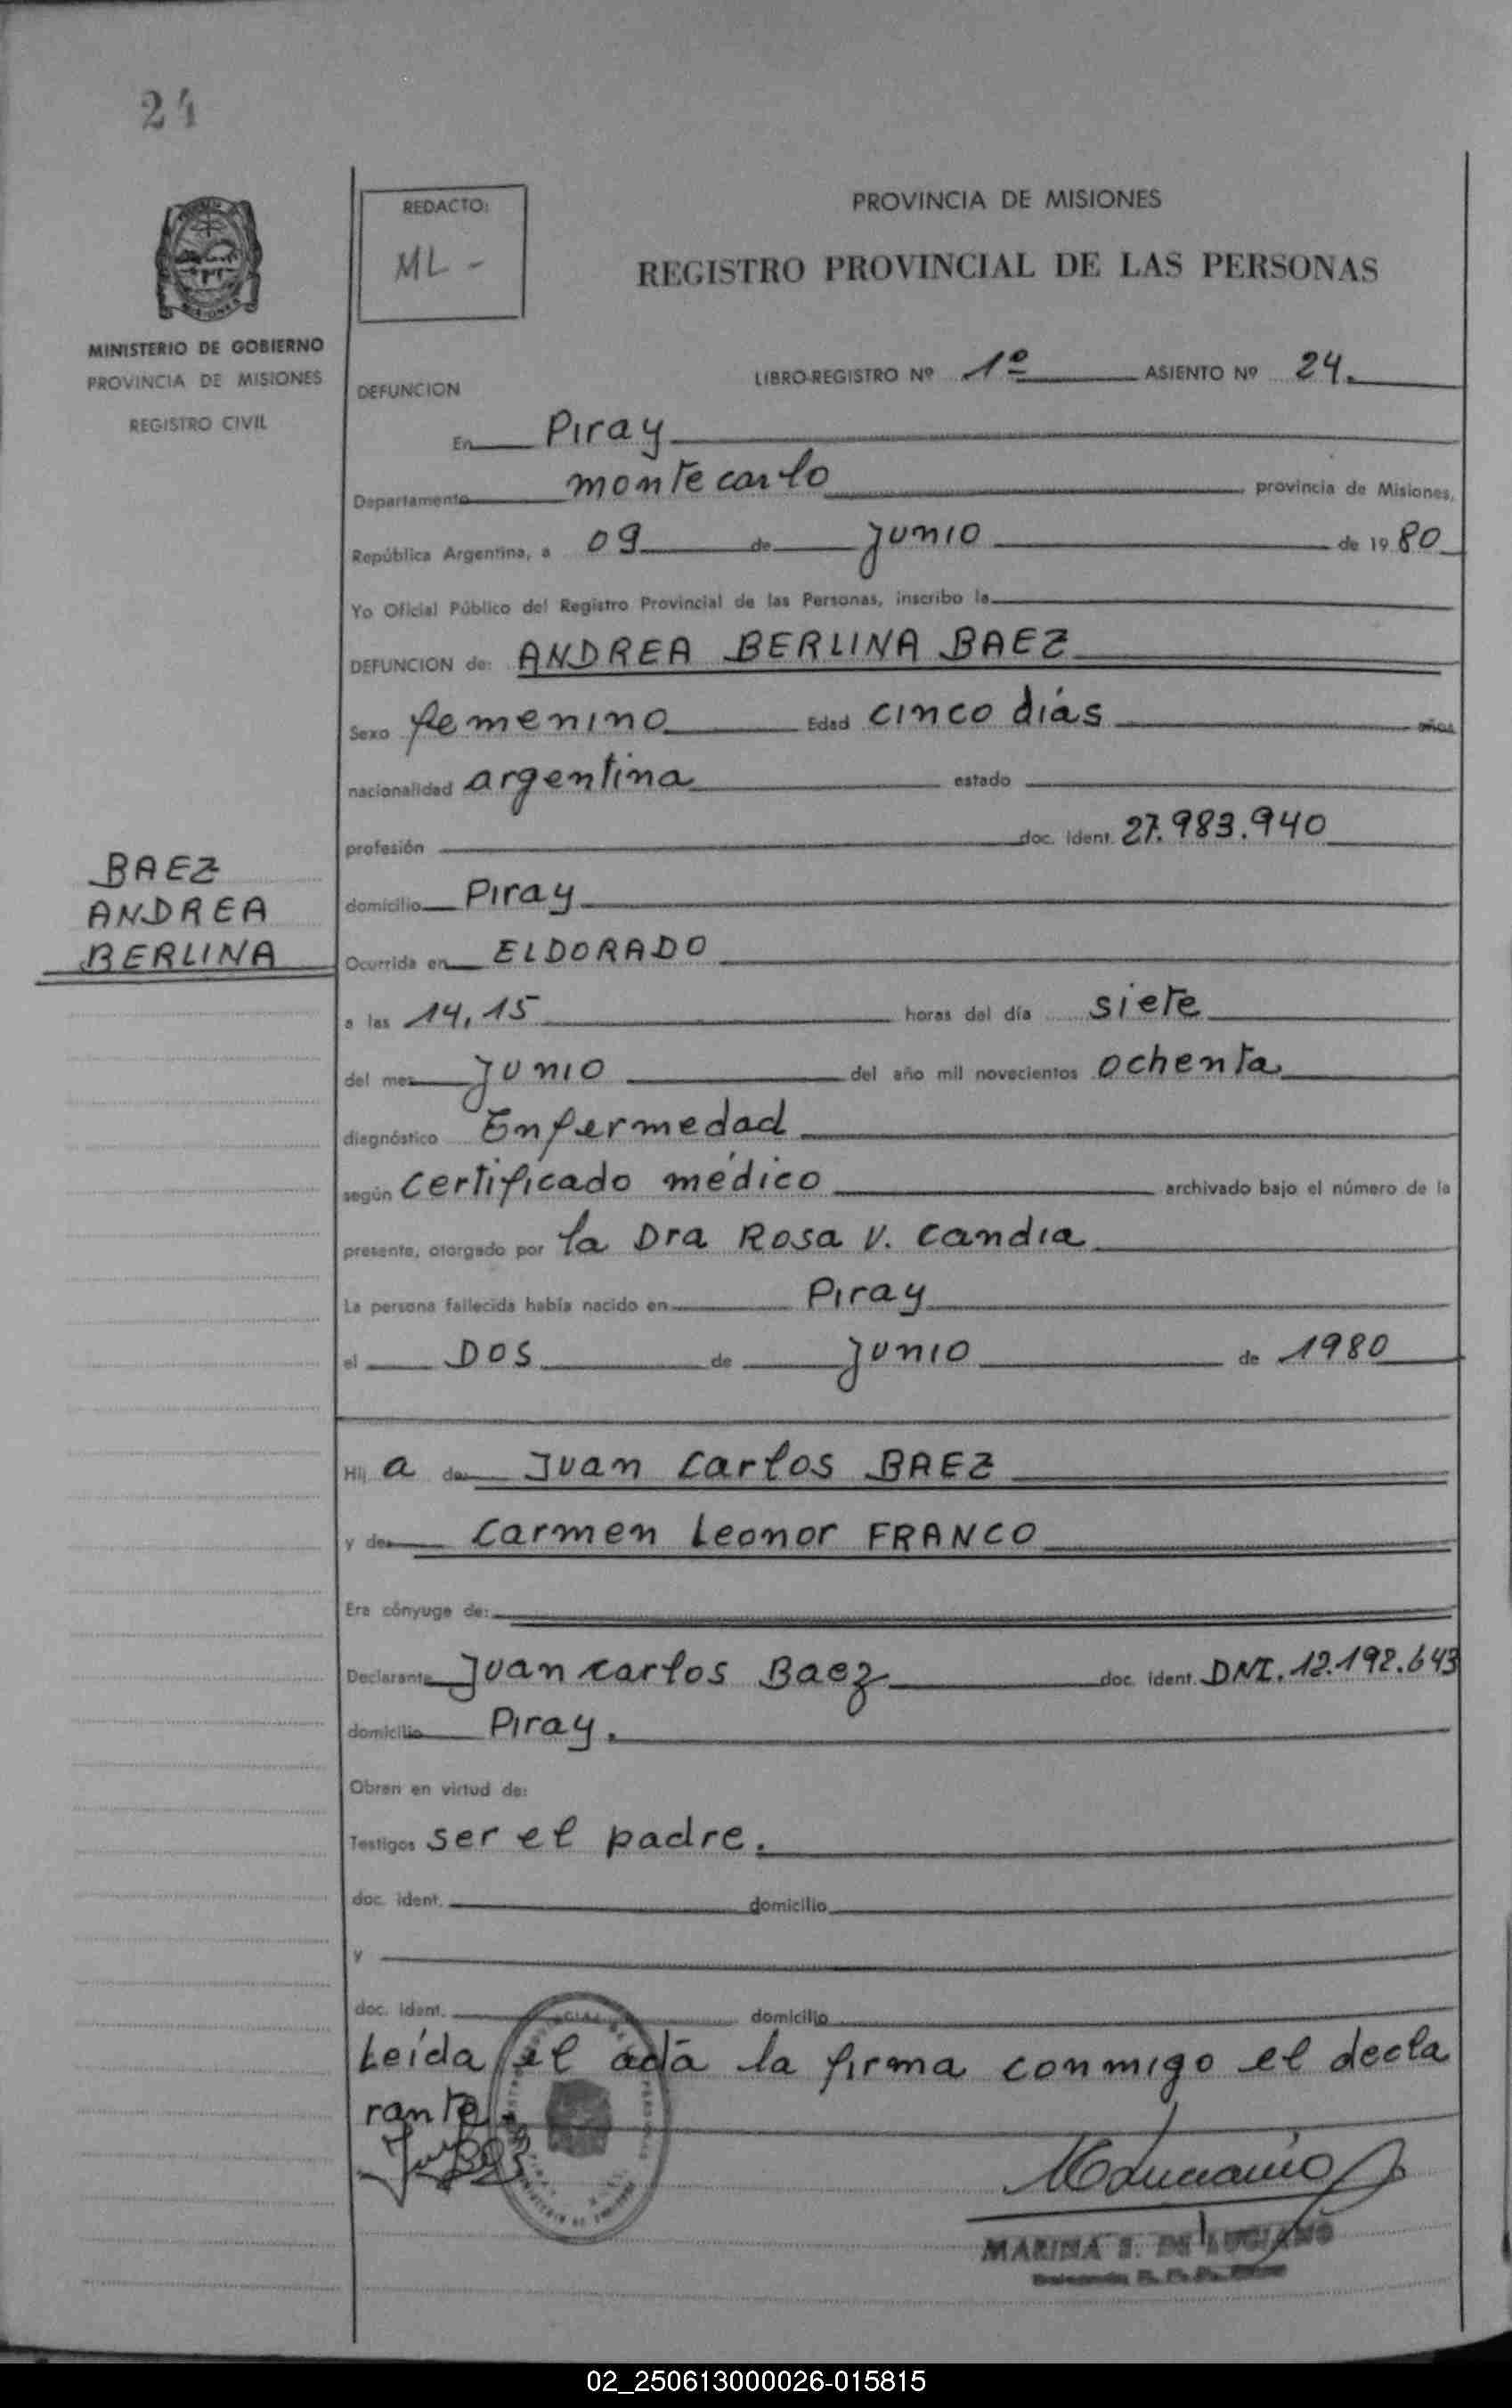 24
REDACTO:
ML -
PROVINCIA DE MISIONES
REGISTRO PROVINCIAL DE LAS PERSONAS
MINISTERIO DE GOBIERNO
PROVINCIA DE MISIONES
REGISTRO CIVIL
LIBRO-REGISTRO Nº 1º ASIENTO Nº 24.
DEFUNCION
En Piray
Departamento montecarlo provincia de Misiones,
República Argentina, a 09 de Junio de 1980
Yo Oficial Público del Registro Provincial de las Personas, inscribo la
DEFUNCION de: ANDREA BERLINA BAEZ
Sexo femenino Edad cinco días años
nacionalidad argentina estado
profesión doc. ident. 27.983.940
BAEZ
ANDREA
BERLINA
domicilio Piray
Ocurrida en ELDORADO
a las 14,15 horas del día siete
del mes Junio del año mil novecientos ochenta
diagnóstico Enfermedad
según certificado médico archivado bajo el número de la
presente, otorgado por la Dra Rosa V. Candia
La persona fallecida había nacido en Piray
el DOS de Junio de 1980
Hij a de Juan Carlos BAEZ
y de Carmen Leonor FRANCO
Era cónyuge de:
Declarante Juan Carlos Baez doc. ident. DNI. 12.192.643
domicilio Piray.
Obran en virtud de:
Testigos ser el padre.
doc. ident. domicilio
y
doc. ident. domicilio
Leída el acta la firma conmigo el decla
rante.
MARINA S. DE LUCIANO
02_250613000026-015815